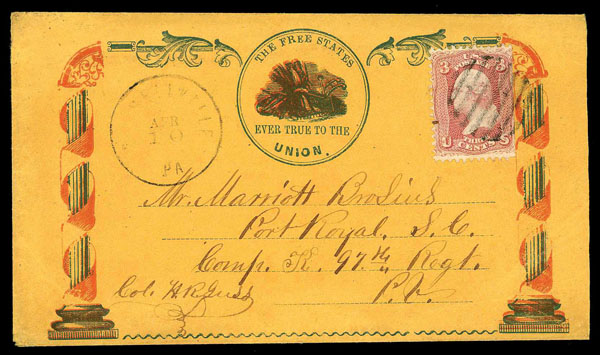 THE FREE STATES
EVER TRUE TO THE
UNION.
APR
PA
3 3
U.S.
POSTAGE
THREE
CENTS
Mr. Marriott Brosius
Port Royal, S. C.
Comp. K. 97th Regt.
P.V.
Col. H.R. Guss